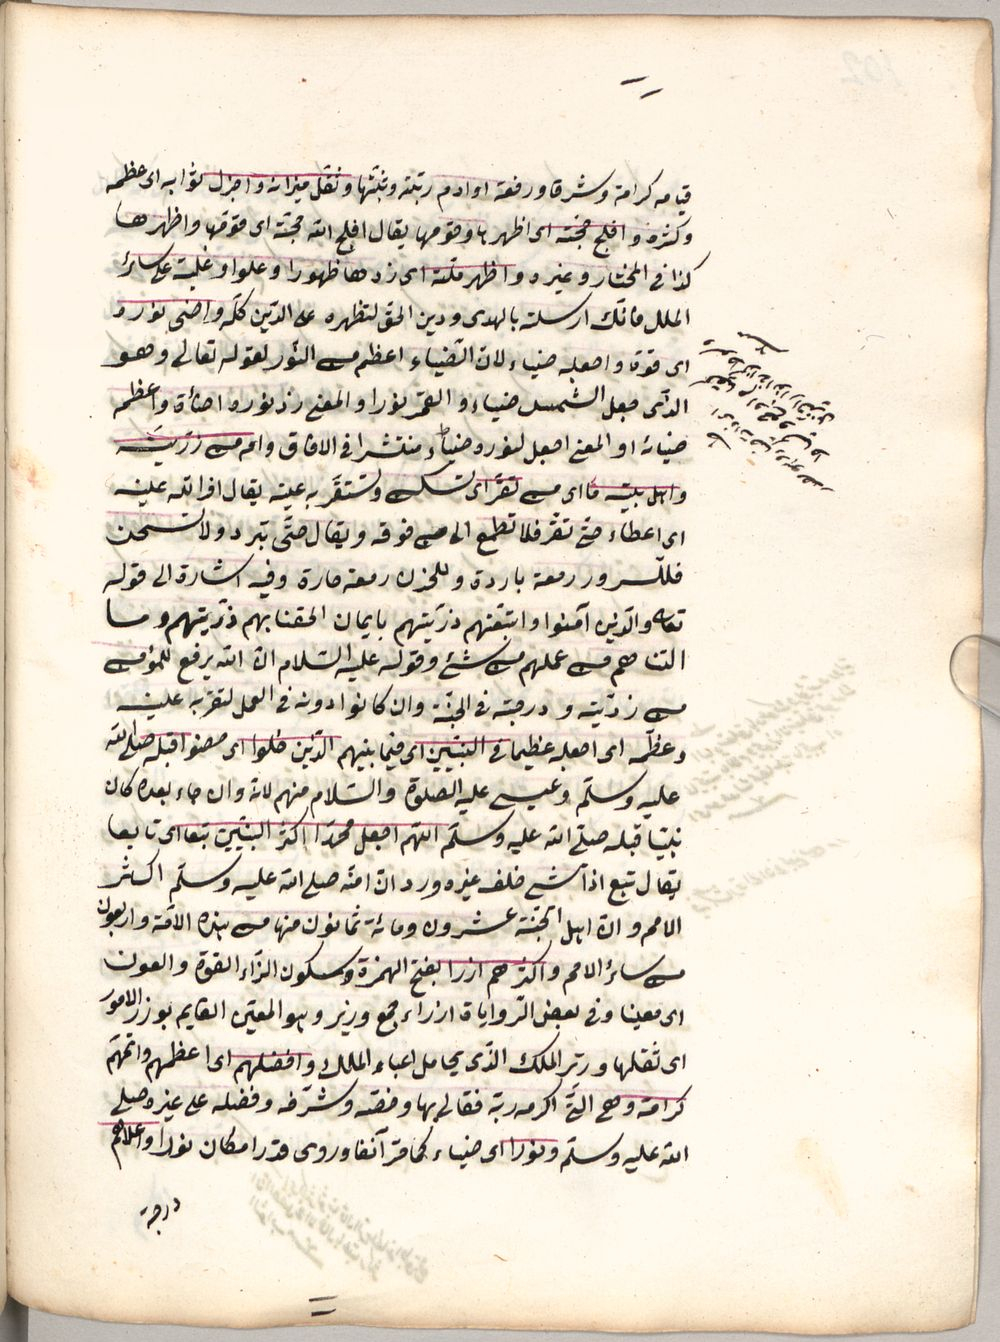 قيامه كرامة وشرفا ورفعة او ادم رتبته وثبتها وثقل ميزانه واجزل ثوابه اى عظمه
وكثره وافلج حجته اى اظهرها وقومها يقال افلج الله حجته اى قومها واظهرها
كذا فى المختار وغيره واظهر ملته اى زدها ظهورا وعلوا وغلبة على سائر
الملل فانك ارسلته بالهدى ودين الحق لتظهره على الدين كله واضئ نوره
اى قوة واجعله ضياء لان الضياء اعظم من النور لقوله تعالى وهو
الذى جعل الشمس ضياء والقمر نورا والمعنى زد نوره اضاءة واعظم
ضيائه او المعنى اجعل لنوره ضياء منتشرا فى الافاق وادم من ذريته
واهل بيته ما اى من تقر اى تسكن وتستقر به عينه يقال اقر الله عينه
اى اعطاه حتى تقر فلا تطمع الى من فوقه ويقال حتى تبرد ولا تسخن
فللسرور دمعة باردة وللحزن دمعة حارة وفيه اشارة الى قوله
تعالى والذين آمنوا واتبعتهم ذريتهم بايمان الحقنا بهم ذريتهم وما
التناهم من عملهم من شئ وقوله عليه السلام ان الله يرفع للمؤمن
من ذريته ودرجته فى الجنة وان كانوا دونه فى العمل لتقر به عينه
وعظمه اى اجعله عظيما فى النبيين اى فيما بينهم الذين خلوا اى مضوا قبله صلى الله
عليه وسلم وعيسى عليه الصلوة والسلام منهم لانه وان جاء بعده كان
نبيا قبله صلى الله عليه وسلم اللهم اجعل محمدا اكثر النبيين تبعا اى تابعا
يقال تبع اذا مشى خلف غيره ورد ان امته صلى الله عليه وسلم اكثر
الامم وان اهل الجنة عشرون ومائة ثمانون منها من هذه الامة واربعون
من سائر الامم واكثرهم ازرا بفتح الهمزة وسكون الزاء القوة والعون
اى معينا وفى بعض الروايات ازراء جمع وزير وهو المعين القايم بوزر الامور
اى ثقلها وزير الملك الذى يحامل اعباء الملك وافضلهم اى اعظمهم واتمهم
كرامة وهى التى اكرمه ربه تعالى بها وخصه وشرفه وفضله على غيره صلى
الله عليه وسلم ونورا اى ضياء كما مر آنفا وروى قدرا مكان نورا واعلاهم
درجة